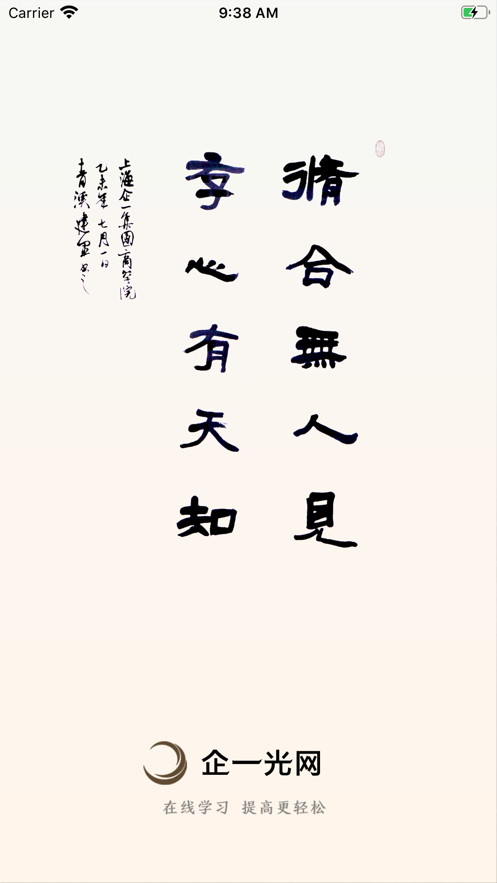 Carrier 9:38 AM
脩合無人見
存心有天知
上海企一集團商学院
乙未年七月一日
青溪建
企一光网
在线学习 提高更轻松